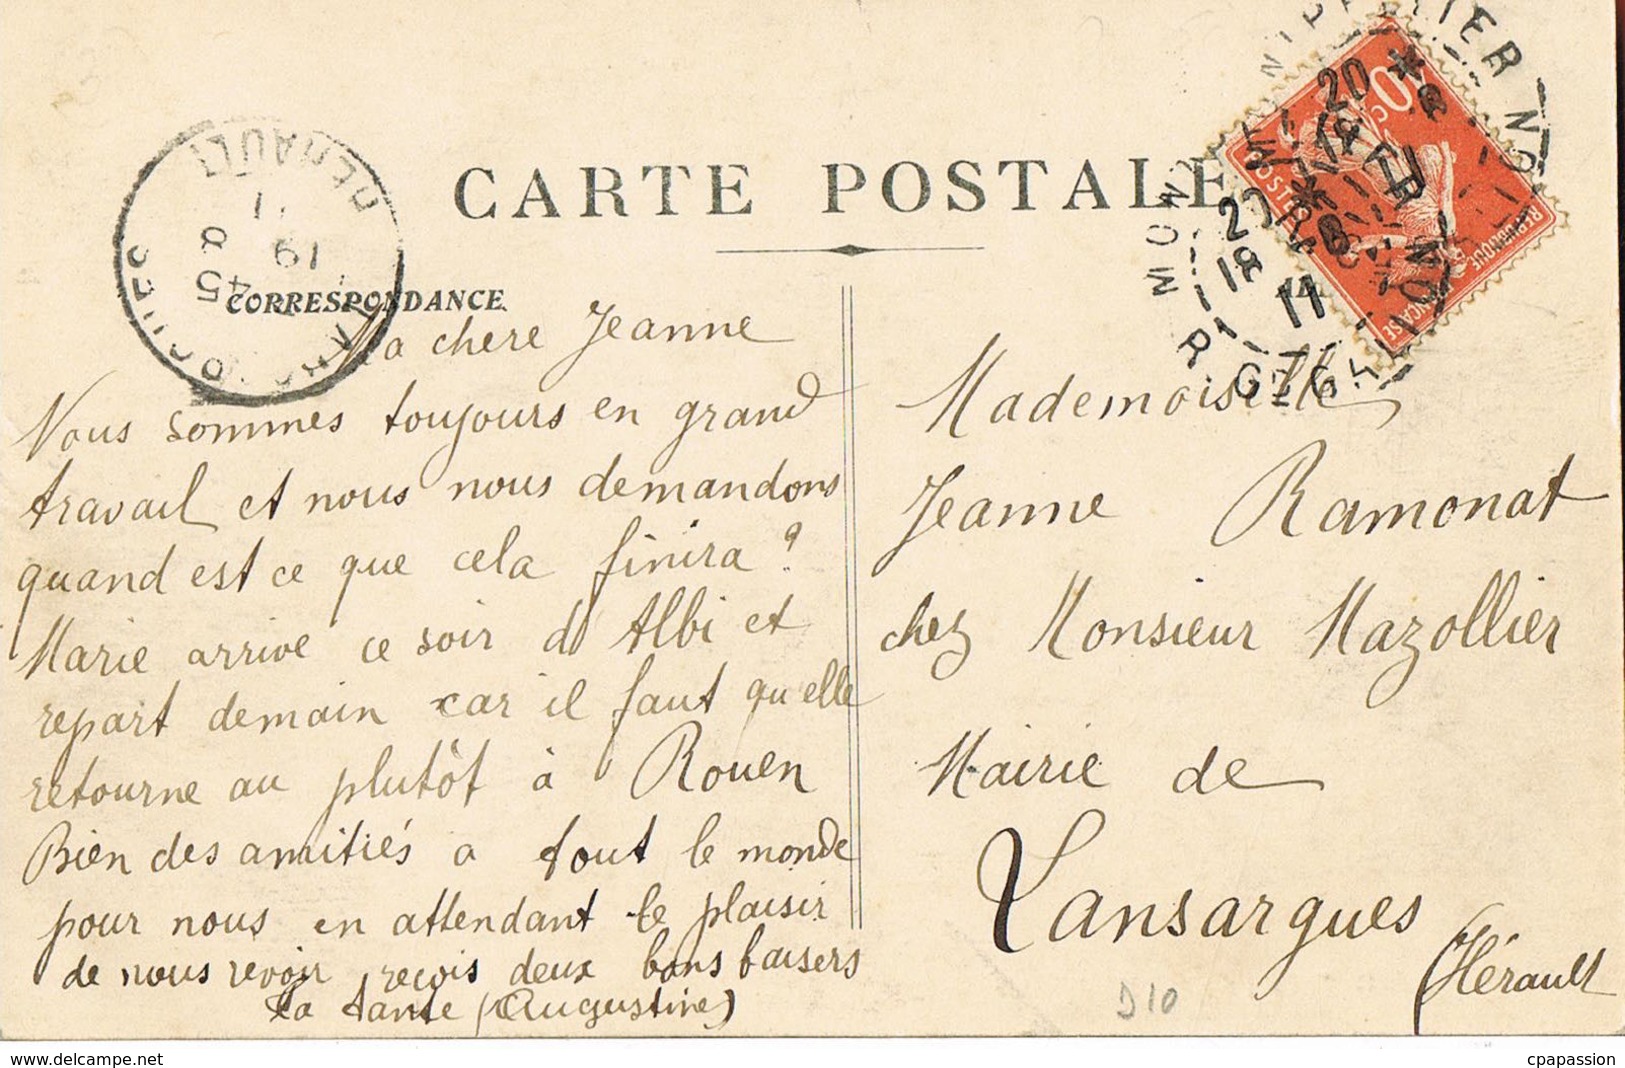 CARTE POSTALE
CORRESPONDANCE
Ma chere Jeanne
Nous sommes toujours en grand
travail et nous nous demandons
quand est ce que cela finira ?
Marie arrive ce soir d'Albi et
repart demain car il faut qu'elle
retourne au plutôt à Rouen
Bien des amitiés a tout le monde
pour nous en attendant le plaisir
de nous revoir reçois deux bons baisers
Ta tante (Augustine)
Mademoiselle
Jeanne Ramonat
chez Monsieur Mazollier
Mairie de
Lansargues
(Hérault
D10
HERAULT
11
19 8
45
LANSARGUES
MONTPELLIER
20 *
18 8
11
10c
POSTES
REPUBLIQUE
FRANÇAISE
www.delcampe.net
cpapassion